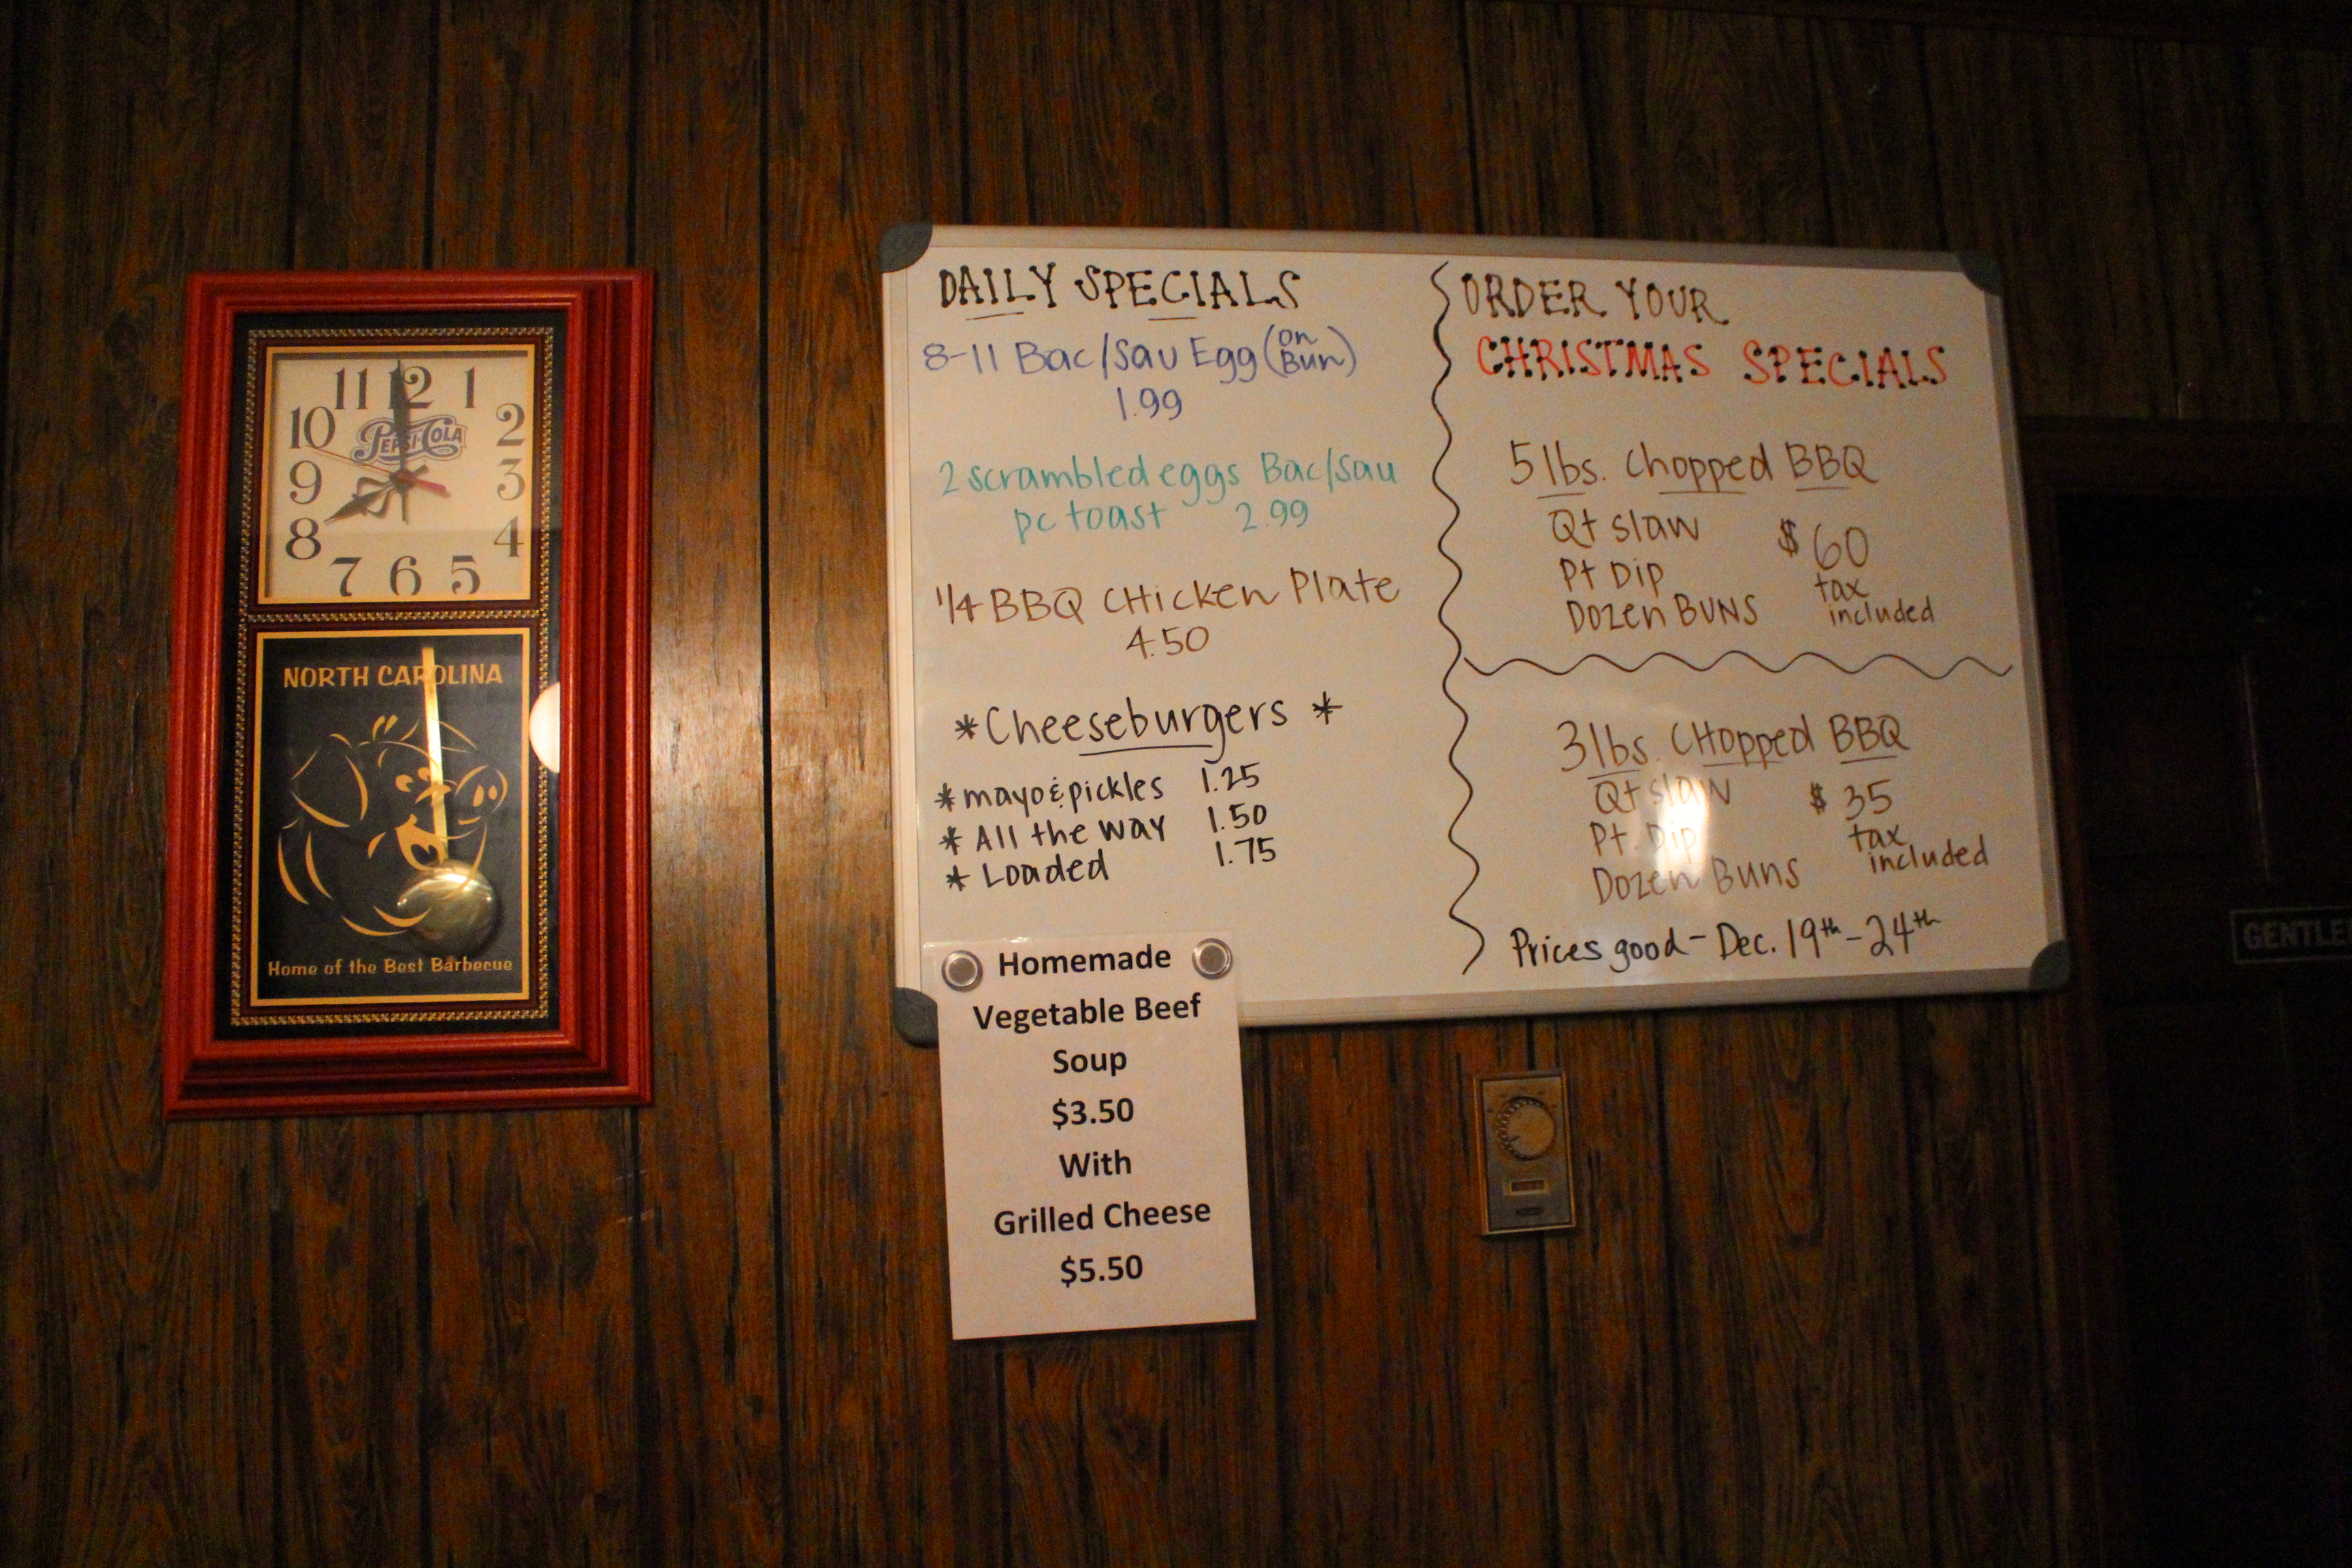 11 12 1
10 2
PEPSI-COLA
9 3
8 4
7 6 5
NORTH CAROLINA
Home of the Best Barbecue
DAILY SPECIALS
8-11 Bac/Sau Egg (on Bun)
1.99
2 scrambled eggs Bac/Sau
pc toast 2.99
1/4 BBQ CHicken Plate
4.50
*Cheeseburgers *
* mayo & pickles 1.25
* All the way 1.50
* Loaded 1.75
ORDER YOUR
CHRISTMAS SPECIALS
5 lbs. Chopped BBQ
Qt slaw
$60
Pt Dip
tax
Dozen BUNS
included
3 lbs. CHopped BBQ
Qt slaw
$35
Pt. Dip
tax
included
Dozen Buns
Prices good - Dec. 19th - 24th
Homemade
Vegetable Beef
Soup
$3.50
With
Grilled Cheese
$5.50